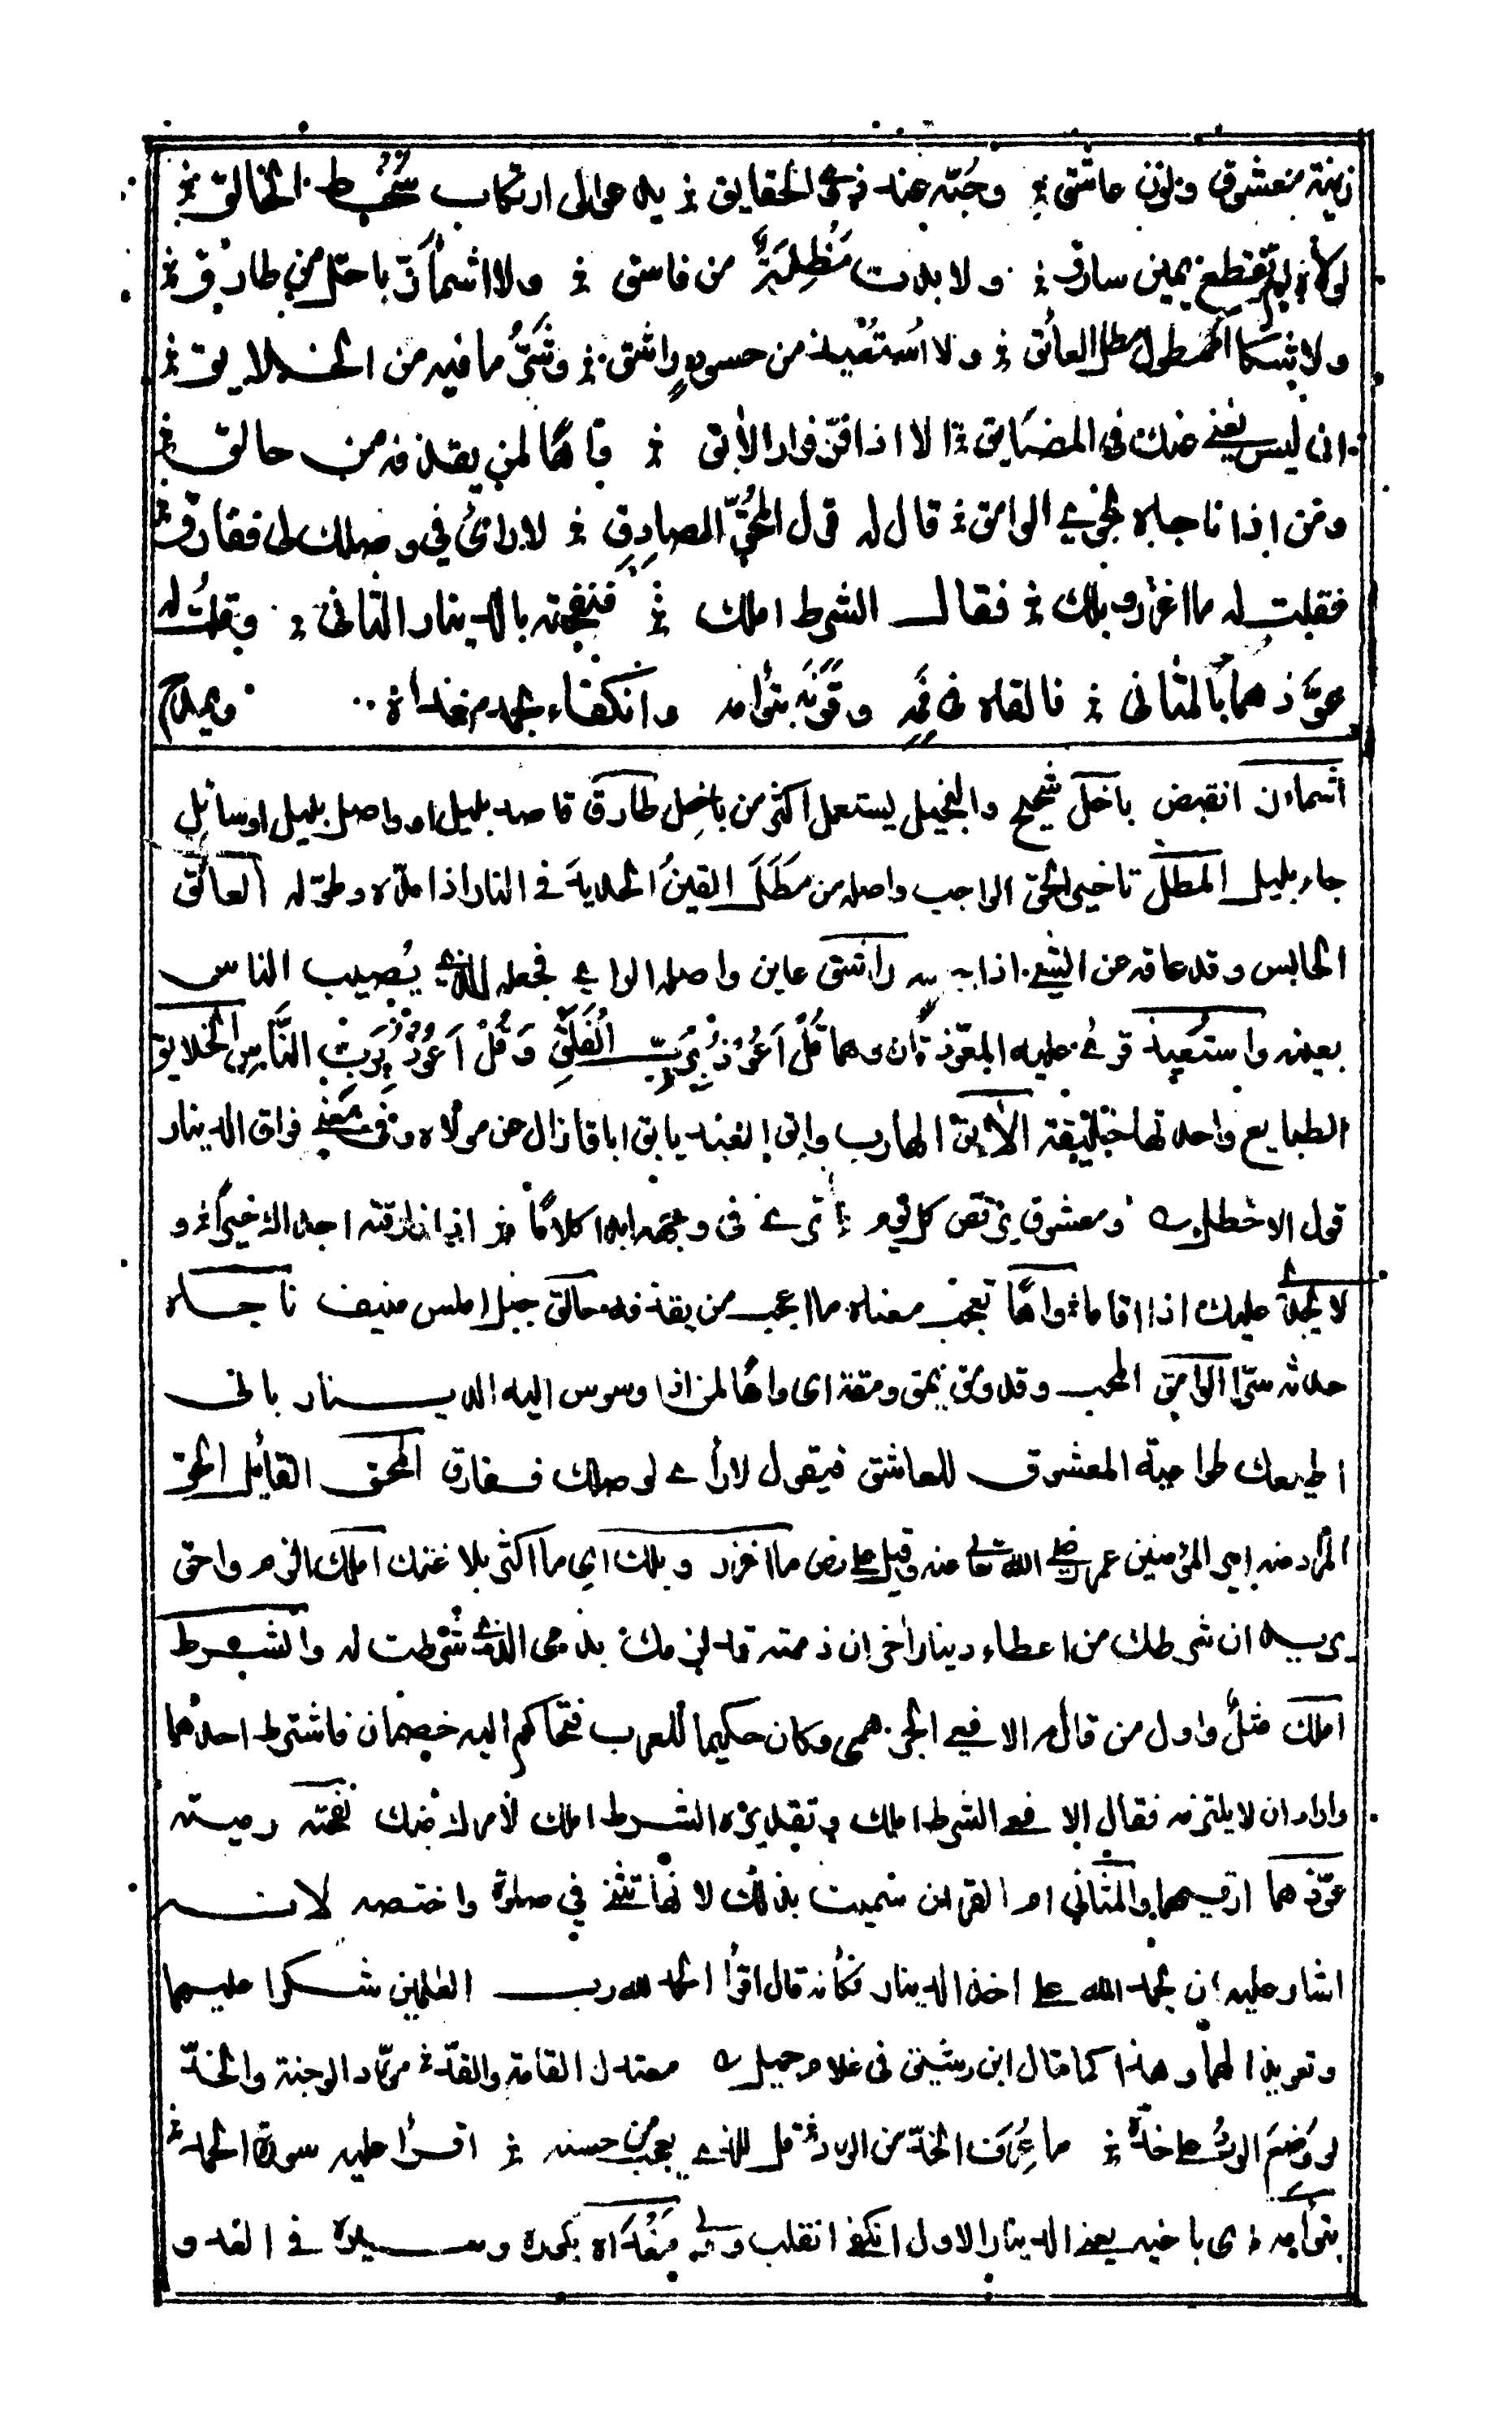 زينة معشوق ولون عاشق وحبه عند ذوى الحقايق يدعو الى ارتكاب سخط الخالق
لولاه لم تقطع يمين سارق ولا بدت مظلمة من فاسق ولا اشمأز باخل من طارق
ولا شكا الممطول مطل العائق ولا استعيذ من حسود راشق وشر ما فيه من الخلايق
ان ليس يغنى عنك فى المضايق الا اذا فر فرار الآبق واها لمن يقذفه من حالق
ومن اذا ناجاه نجوى الوامق قال له قول المحق الصادق لا رأى فى وصلك لى ففارق
فقلت له ما اغزر وبلك فقال الشرط املك فنفحته بالدينار الثانى وقلت له
عوذهما بالمثانى فالقاه فى فمه وقرنه بتوأمه وانكفاء يحمد مغداه ويمدح
اشمأز انقبض باخل شحيح والبخيل يستعمل اكثر من باخل طارق قاصد بليل او واصل بليل او سائل
جاء بليل المطل تاخير الحق الواجب واصله من مطل القين الحديدة فى النار اذا مده وطوله العائق
الحابس وقد عاقه عن الشىء اذا راشق عاين واصله الرامى فجعله للذى يصيب الناس
بعينه واستعيذ قرئ عليه المعوذتان وهما قل اعوذ برب الفلق وقل اعوذ برب الناس الخلايق
الطبايع واحدتها خليقة الآبق الهارب وابق العبد يابق اباقا زال عن مولاه وفى معنى فراق الدينار
قول الاخطل ومعشوق يرقص كل قوم ترى فى وجهه ابدا كلاما اذا فارقته اجداك خيرا و
لا يجدى عليك اذا اقاما واها تعجب معناه ما اعجب من يقذفه حالق جبل املس منيف ناجاه
حدثه سرا الوامق المحب وقد ومق يمق ومقة اى واها لمن اذا وسوس اليه الدينار بانى
اطيعك طواعية المعشوق للعاشق فيقول لا رأى لى وصلك ففارق المحق القائل الحق
المراد منه امير المؤمنين عمر رضى الله تعالى عنه وقيل على رض ما اغزر وبلك اى ما اكثر بلاغتك املك الزم واحق
يريد ان شرطك من اعطاء دينار آخر ان ذممته قد لزمك بذمى الذى شرطت له والشرط
املك مثل واول من قاله الافعى الجرهمى وكان حكيما للعرب فتحاكم اليه خصمان فاشترط احدهما
واراد ان لا يلتزمه فقال الافعى الشرط املك وتقديره الشرط املك لأمرك منك نفحته رميته
عوذهما ارقيهما والمثانى ام القرآن سميت بذلك لانها تثنى فى صلوة واختصه لانه
اشار عليه ان يحمد الله على اخذ الدينار فكأنه قال اقرأ الحمد لله رب العلمين شكرا عليهما
وتعويذا لهما وهذا كما قال ابن رشيق فى غلام جميل معتدل القامة والقد مورد الوجنة والخد
لو وضع الورد على خده ما عرف الخد من الورد قل للذى يعجب من حسنه اقرأ عليه سورة الحمد
بتوأمه اى باخيه يعنى الدينار الاول انكفى انقلب وولى مغداه بكوره وسيره فى الغد و